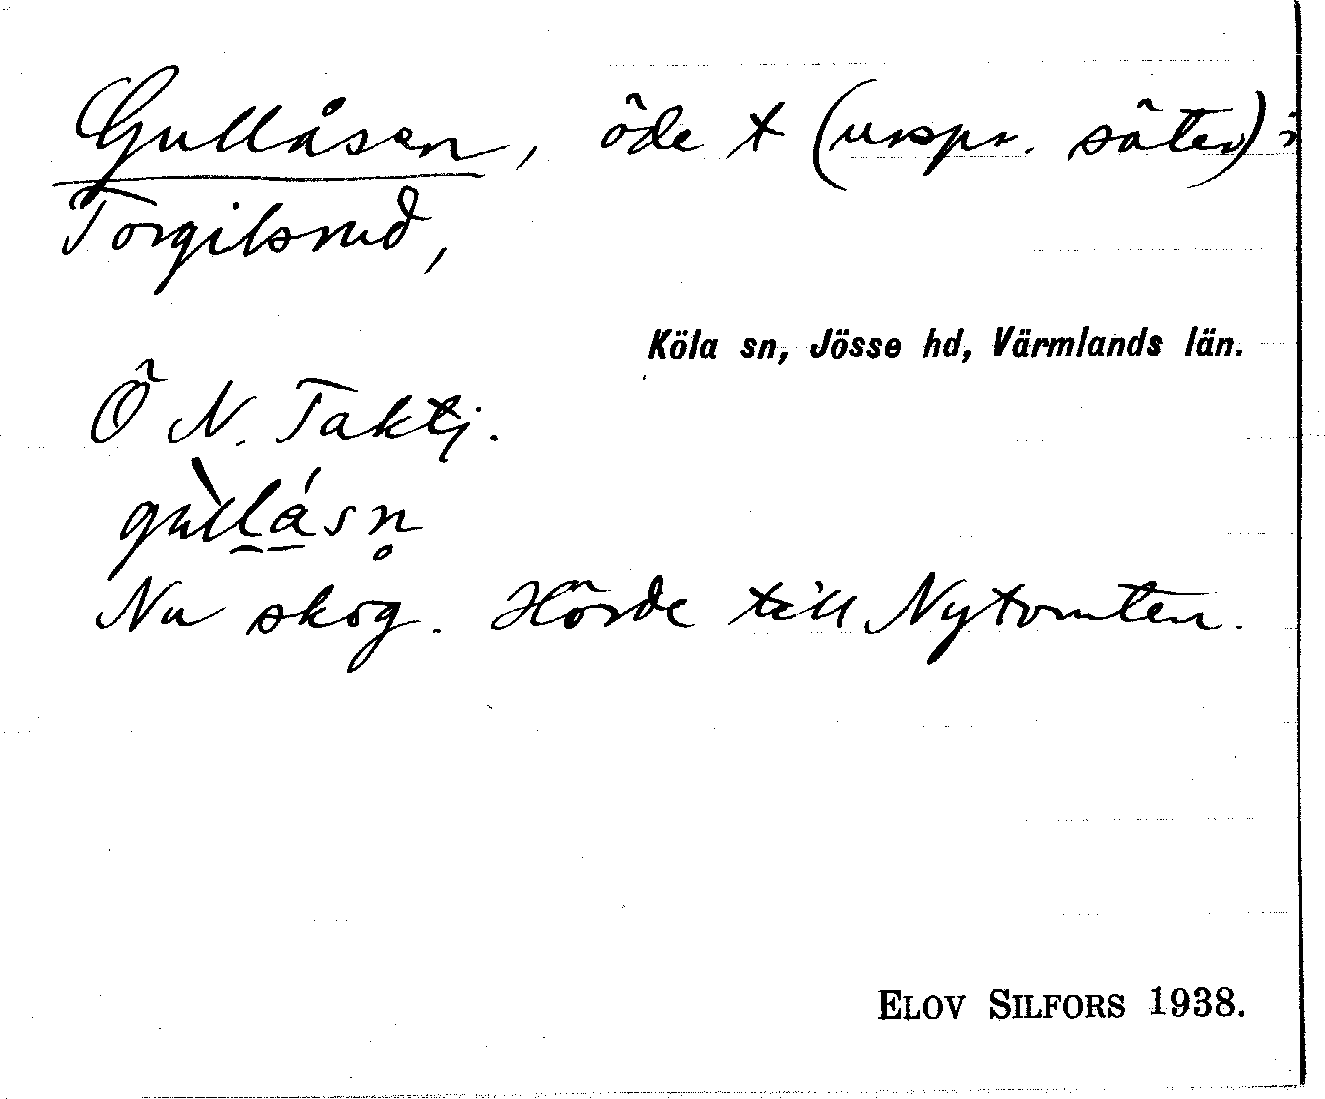 Gullåsen, öde t (urspr. säter) i
Torgilsrud,
Köla sn, Jösse hd, Värmlands län.
Ö N. Taktj.
Nu skog. Hörde till Nytomten.
ELOV SILFORS 1938.